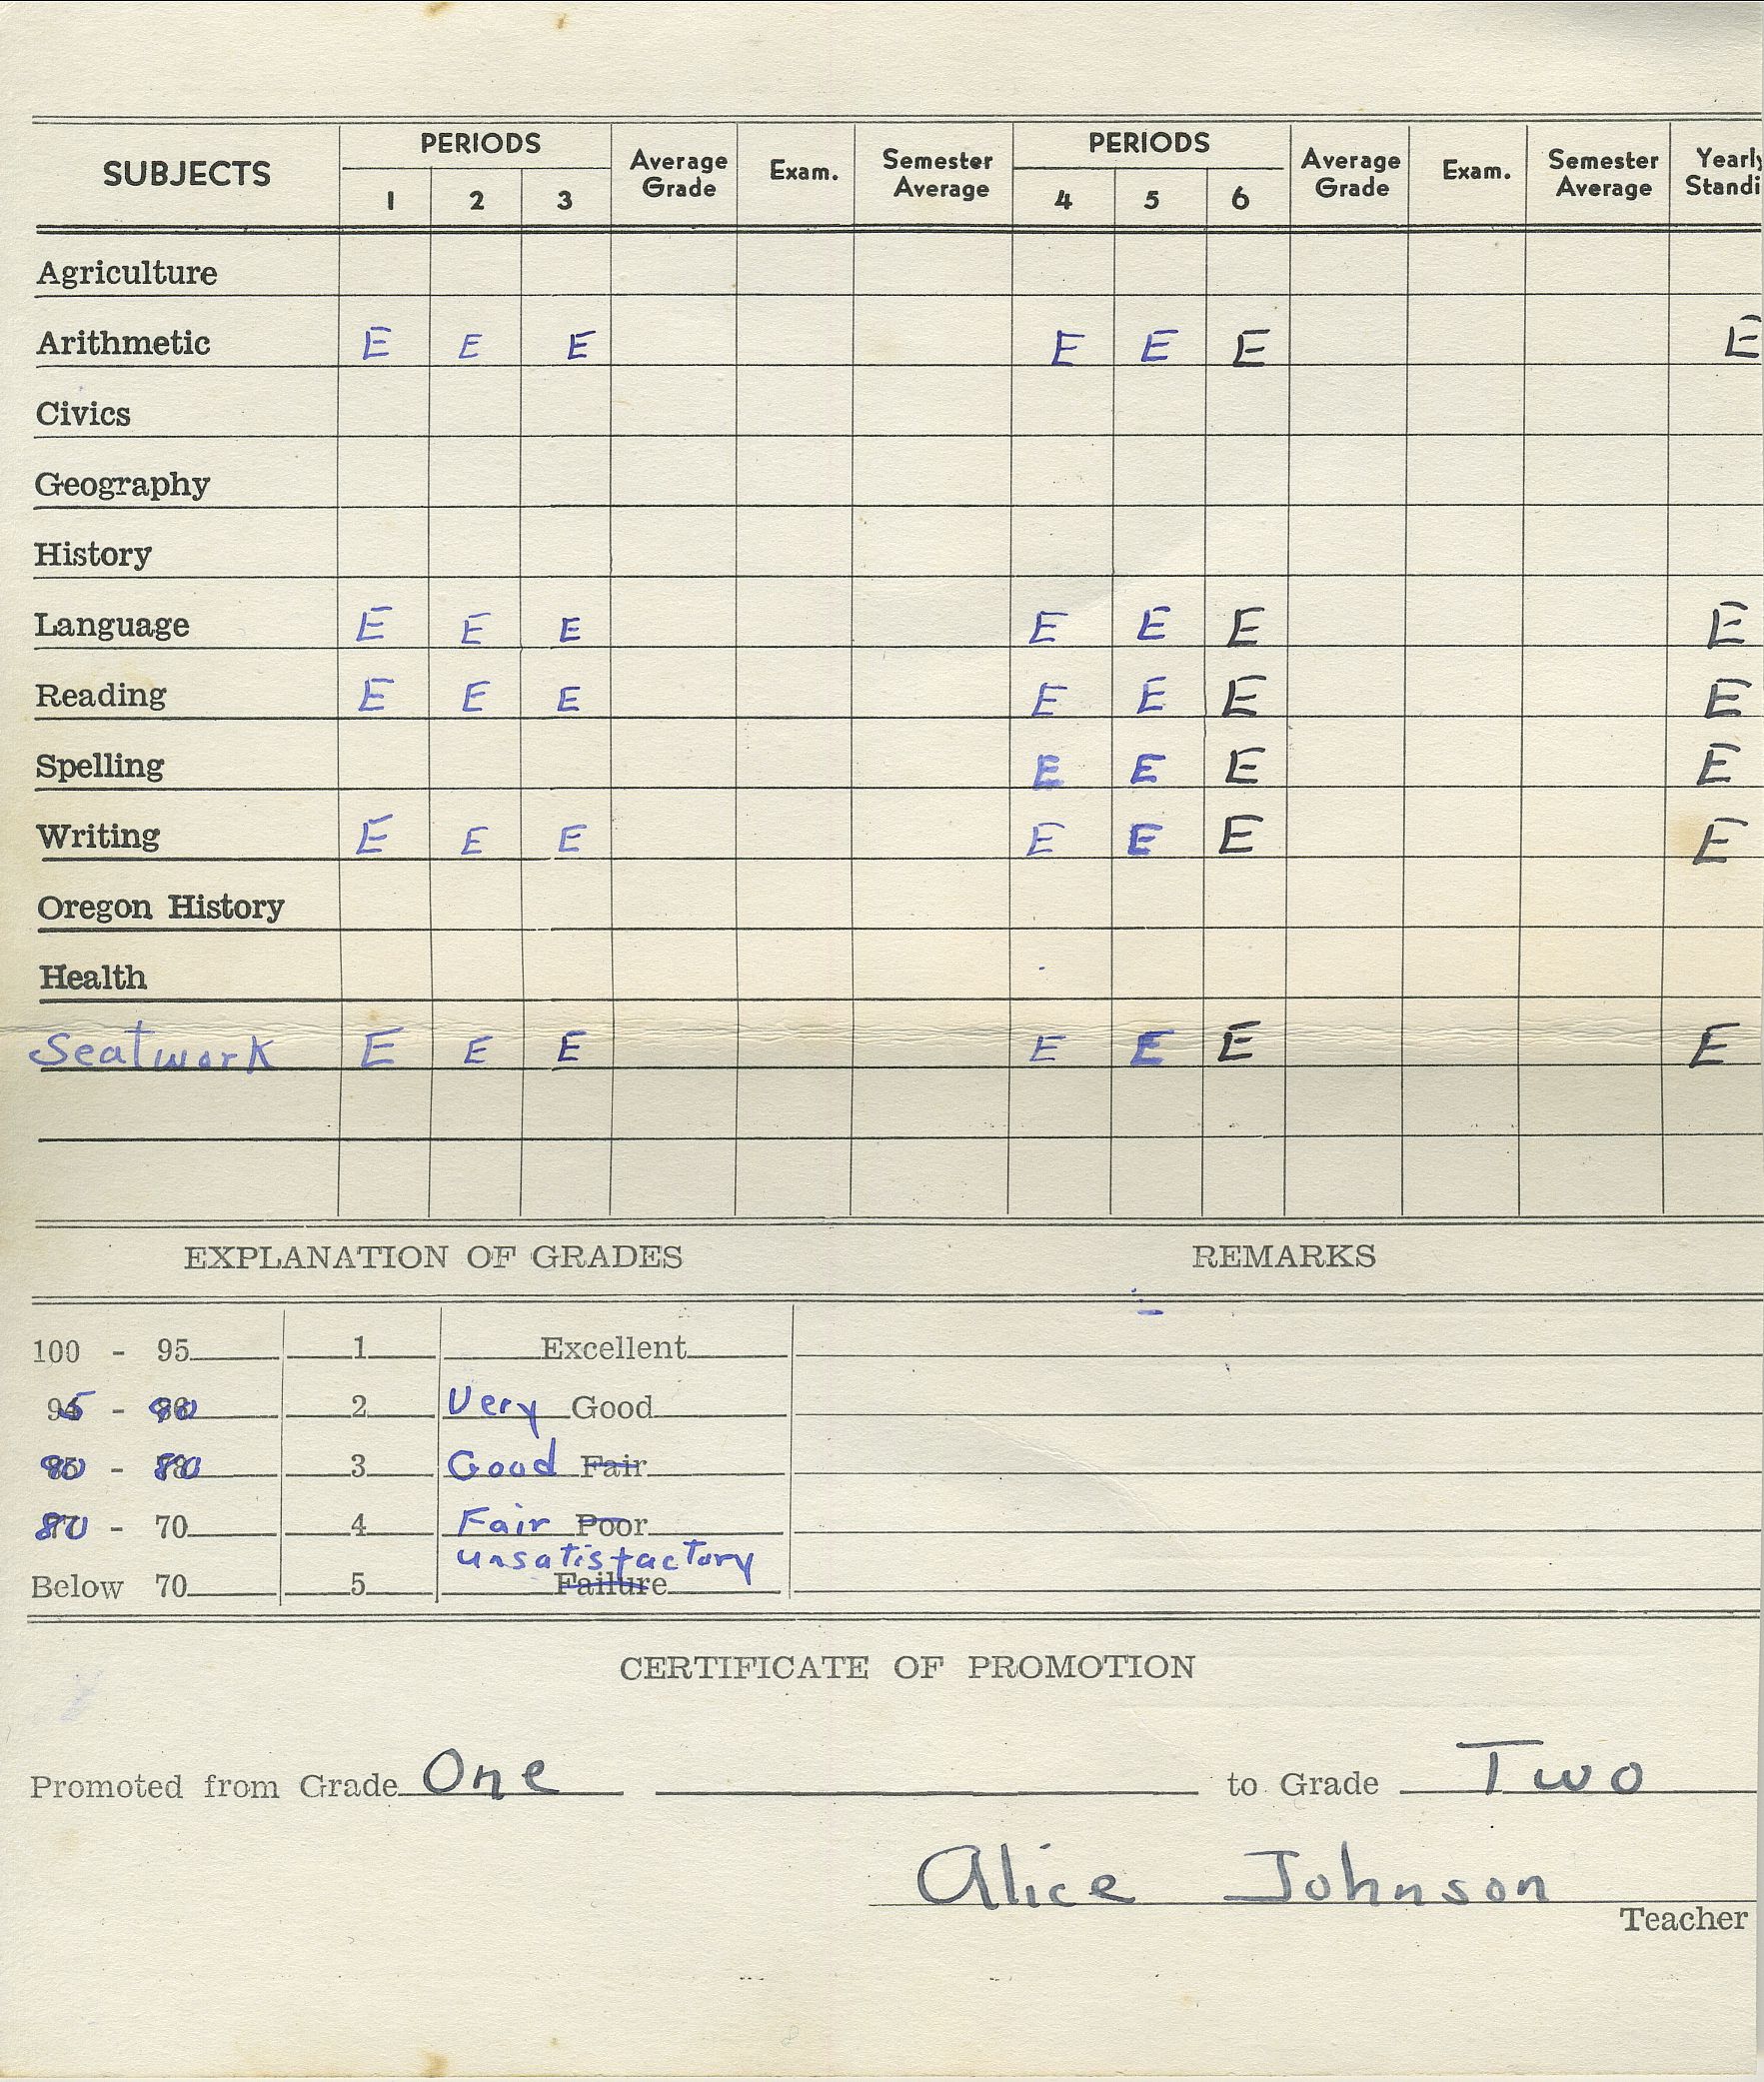 SUBJECTS PERIODS Average Grade Exam. Semester Average PERIODS Average Grade Exam. Semester Average Yearly Standi
1 2 3 4 5 6
Agriculture
Arithmetic E E E E E E E
Civics
Geography
History
Language E E E E E E E
Reading E E E E E E E
Spelling E E E E
Writing E E E E E E E
Oregon History
Health
Seatwork E E E E E E E
EXPLANATION OF GRADES REMARKS
100 - 95 1 Excellent
95 - 90 2 Very Good
90 - 80 3 Good Fair
80 - 70 4 Fair Poor
unsatisfactory
Below 70 5 Failure
CERTIFICATE OF PROMOTION
Promoted from Grade One to Grade Two
Alice Johnson
Teacher